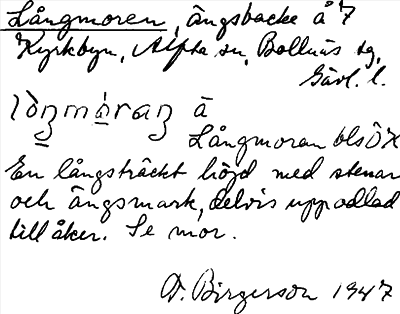 Långmoren, ängsbacke å 7
Kyrkbyn, Alfta sn, Bollnäs tg,
Gävl. l.
lòŋmòraŋ ä
Långmoran bls ÖK
En långsträckt höjd med stenar
och ängsmark, delvis uppodlad
till åker. Se mor.
D. Birgerson 1947